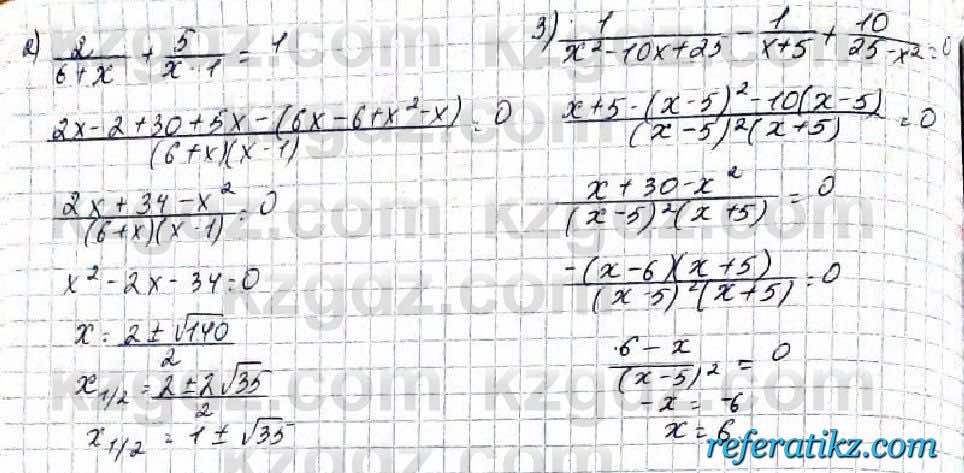 2) 2/(6+x) + 5/(x-1) = 1
(2x-2+30+5x-(6x-6+x²-x))/((6+x)(x-1)) = 0
(2x+34-x²)/((6+x)(x-1)) = 0
x²-2x-34=0
x = (2±√140)/2
x1/2 = (2±2√35)/2
x1/2 = 1±√35
3) 1/(x²-10x+25) - 1/(x+5) + 10/(25-x²) = 0
(x+5-(x-5)²-10(x-5))/((x-5)²(x+5)) = 0
(x+30-x²)/((x-5)²(x+5)) = 0
-(x-6)(x+5)/((x-5)²(x+5)) = 0
(6-x)/((x-5)²) = 0
-x = -6
x = 6
kzgdz.com
referatikz.com